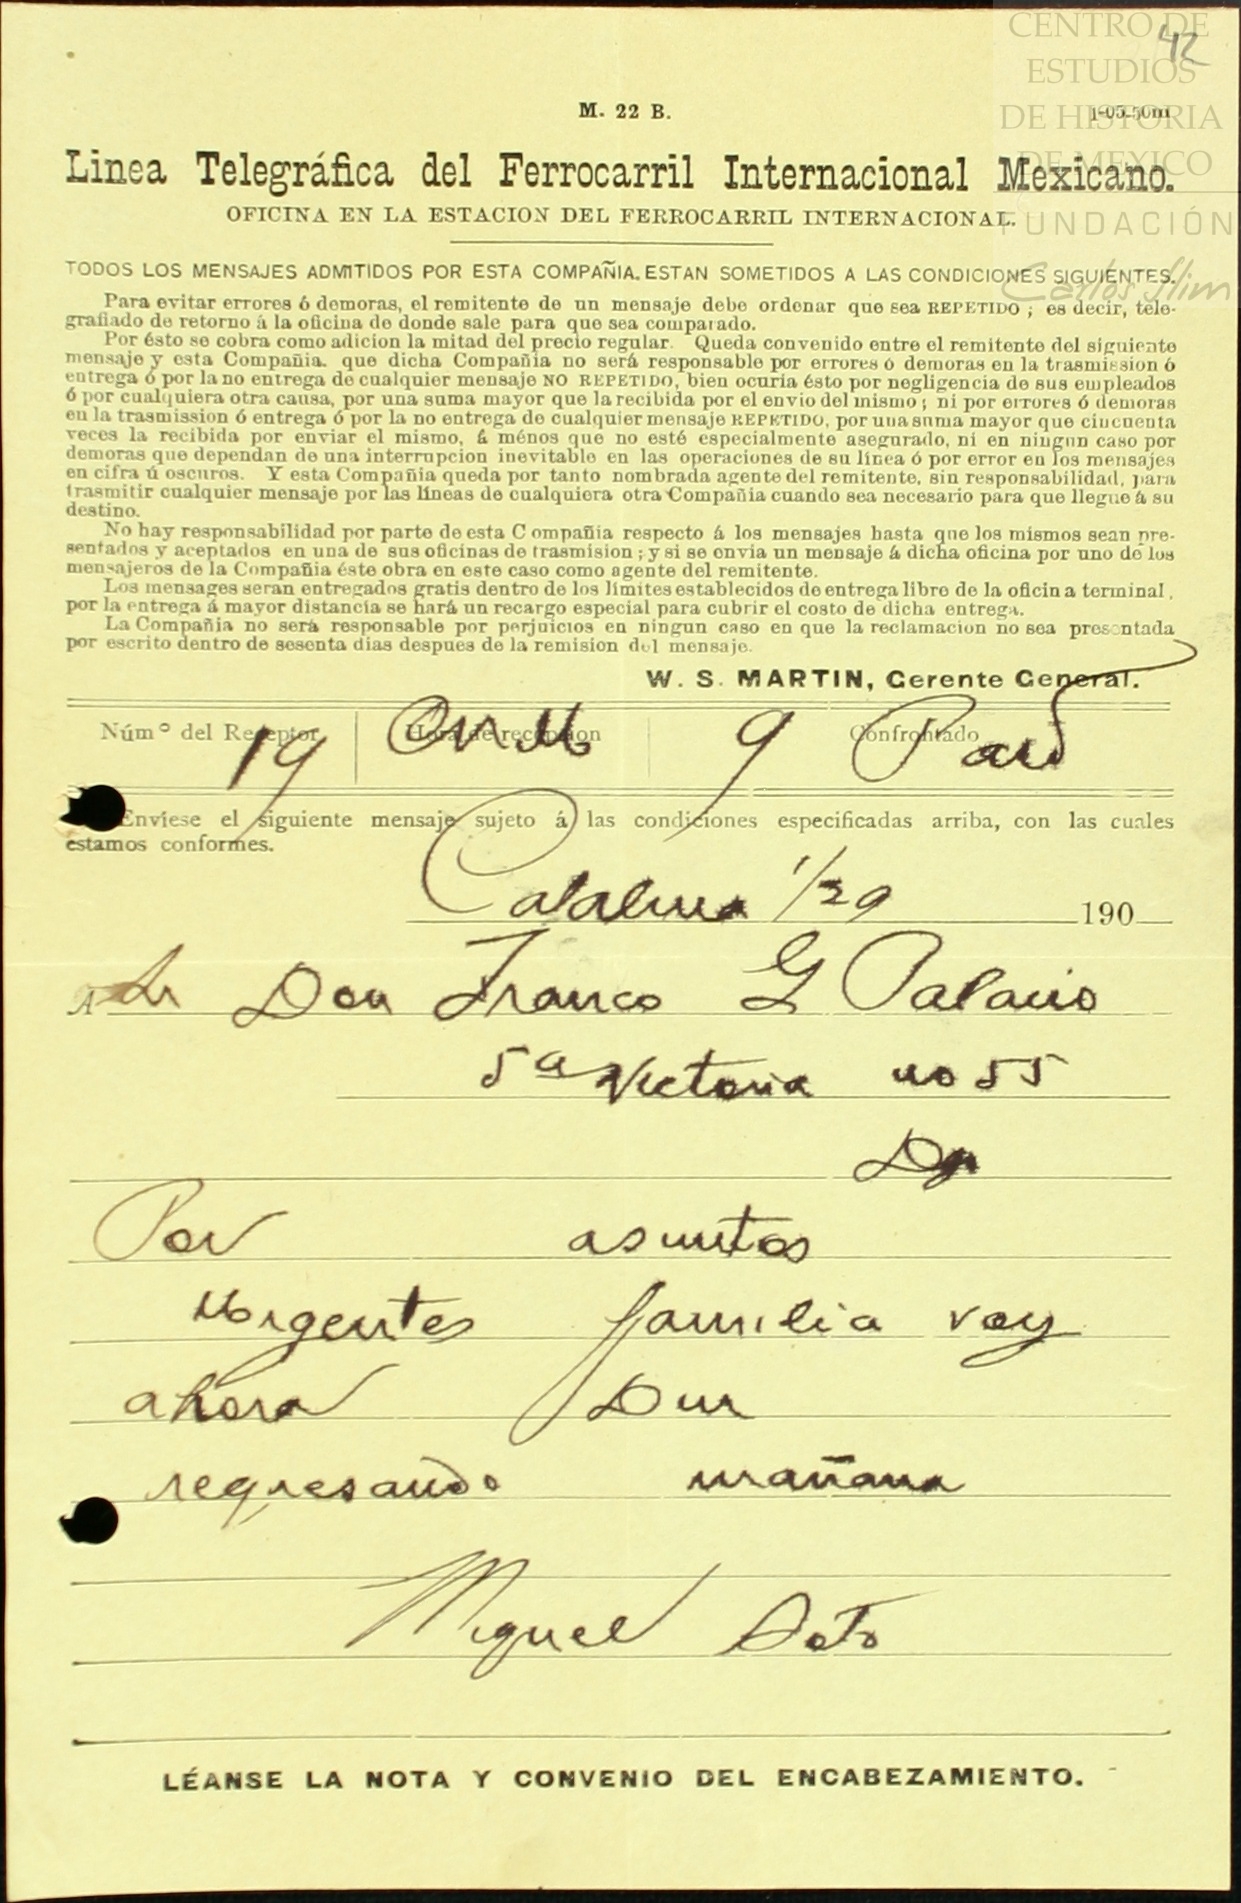 CENTRO DE
ESTUDIOS
DE HISTORIA
DE MEXICO
FUNDACIÓN
Carlos Slim
42
M. 22 B.
1-05-50m
Linea Telegráfica del Ferrocarril Internacional Mexicano.
OFICINA EN LA ESTACION DEL FERROCARRIL INTERNACIONAL.
TODOS LOS MENSAJES ADMITIDOS POR ESTA COMPAÑIA ESTAN SOMETIDOS A LAS CONDICIONES SIGUIENTES.
Para evitar errores ó demoras, el remitente de un mensaje debe ordenar que sea REPETIDO; es decir, tele-
grafiado de retorno á la oficina de donde sale para que sea comparado.
Por ésto se cobra como adicion la mitad del precio regular. Queda convenido entre el remitente del siguiente
mensaje y esta Compañia. que dicha Compañia no será responsable por errores ó demoras en la trasmision ó
entrega ó por la no entrega de cualquier mensaje NO REPETIDO, bien ocuria ésto por negligencia de sus empleados
ó por cualquiera otra causa, por una suma mayor que la recibida por el envio del mismo; ni por errores ó demoras
en la trasmission ó entrega ó por la no entrega de cualquier mensaje REPETIDO, por una suma mayor que cincuenta
veces la recibida por enviar el mismo, á ménos que no esté especialmente asegurado, ni en ningun caso por
demoras que dependan de una interrupcion inevitable en las operaciones de su línea ó por error en los mensajes
en cifra ú oscuros. Y esta Compañia queda por tanto nombrada agente del remitente, sin responsabilidad, para
trasmitir cualquier mensaje por las líneas de cualquiera otra Compañia cuando sea necesario para que llegue á su
destino.
No hay responsabilidad por parte de esta Compañia respecto á los mensajes hasta que los mismos sean pre-
sentados y aceptados en una de sus oficinas de trasmision; y si se envia un mensaje á dicha oficina por uno de los
mensajeros de la Compañia éste obra en este caso como agente del remitente.
Los mensages seran entregados gratis dentro de los límites establecidos de entrega libre de la oficina terminal,
por la entrega á mayor distancia se hará un recargo especial para cubrir el costo de dicha entrega.
La Compañia no será responsable por perjuicios en ningun caso en que la reclamacion no sea presentada
por escrito dentro de sesenta dias despues de la remision del mensaje.
W. S. MARTIN, Gerente General.
Núm° del Receptor Hora de recepcion Confrontado
19 9 Paid
Enviese el siguiente mensaje sujeto á las condiciones especificadas arriba, con las cuales
estamos conformes.
Catalina 1/29 190
A Sr Don Franco G Palacio
5a Victoria no 55
Por asuntos
urgentes familia voy
ahora Dur
regresando mañana
Miguel Soto
LÉANSE LA NOTA Y CONVENIO DEL ENCABEZAMIENTO.